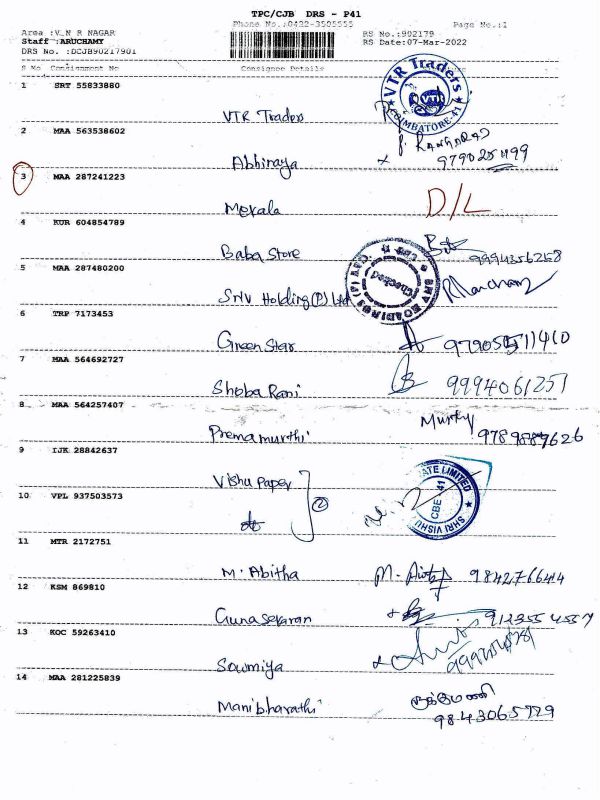 TPC/CJB DRS - P41
Phone No.:0422-3505555 Page No.:1
Area :V N R NAGAR RS No.:902179
Staff :ARUCHAMY RS Date:07-Mar-2022
DRS No. :DCJB90217901
S No Consignment No Consignee Details
1 SRT 55833880
VTR Traders VTR Traders COIMBATORE-41
2 MAA 563538602
Abhinaya
3 MAA 287241223
Mekala D/L
4 KUR 604854789
Baba Store 9994356258
5 MAA 287480200
SNV Holding (P) Ltd Checked
6 TRP 7173453
Green Star
7 MAA 564692727
Shoba Rani 9994061251
8 MAA 564257407
Premamurthi Murthy
9 IJK 28842637
Vishu Paper 2 SHRI VISHU ATE LIMITED CBE 41
10 VPL 937503573
11 MTR 2172751
M. Abitha
12 KSM 869810
Gunasekaran
13 KOC 59263410
Sowmiya
14 MAA 281225839
Manibharathi